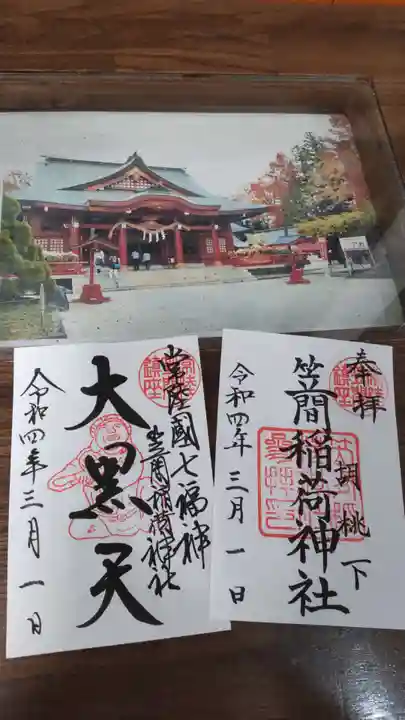 常陸國七福神
笠間稲荷神社
大黒天
令和四年三月一日
奉拝
胡桃下
笠間稲荷神社
令和四年三月一日